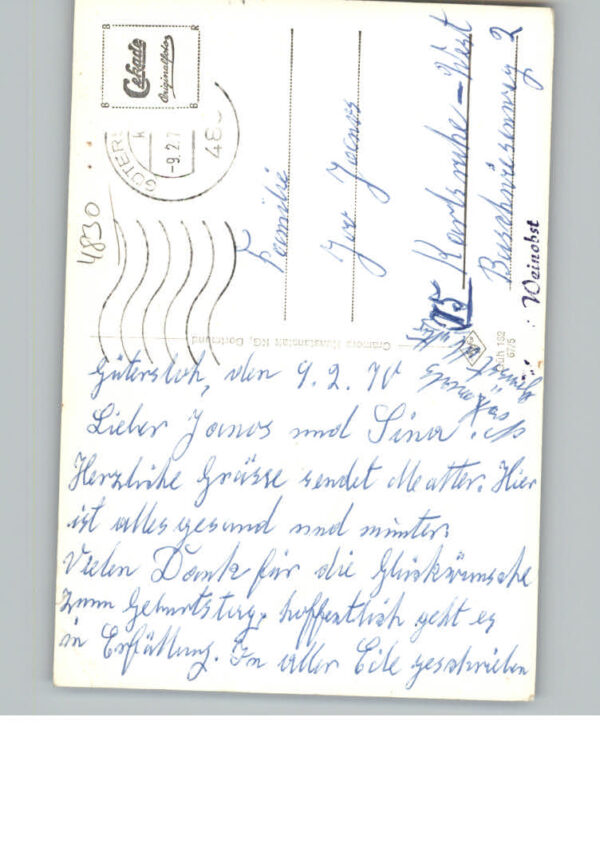 Cekade
Originalfoto
-9.2.7
48
4830
Familie
Janos
75 Karlsruhe-West
2
Weinobst
Cramers Kunstanstalt KG, Dortmund
182
67/5
Gütersloh, den 9.2.70
Lieber Janos und Sina.
Herzliche Grüsse sendet Mutter. Hier
ist alles gesund und munter.
Vielen Dank für die Glückwünsche
zum Geburtstag, hoffentlich geht es
in Erfüllung. In aller Eile geschrieben